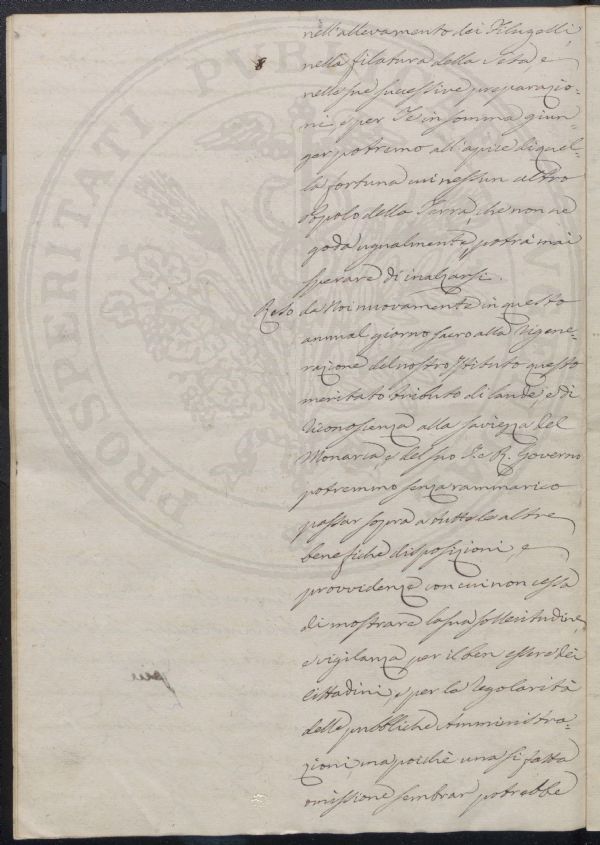 nell'allevamento dei Filugelli,
nella filatura della seta, e
nelle sue successive preparazio-
8
ni, e per Te in somma giun-
ger potremo all'apice di quel-
la fortuna cui nessun altro
Popolo della Terra, che non ne
goda ugualmente, potrà mai
sperare di inalzarsi.
Reso da Noi nuovamente in questo
annual giorno sacro alla Rigene-
razione del nostro Istituto questo
meritato tributo di laude, e di
riconoscenza alla saviezza del
Monarca, e del suo I. e R. Governo
potremmo senza rammarico
passar sopra a tutte le altre
benefiche disposizioni, e
provvidenze con cui non cessa
di mostrare la sua sollecitudine,
e vigilanza per il ben essere dei
Cittadini, e per la regolarità
delle pubbliche Amministra-
zioni, ma poichè una sì fatta
omissione sembrar potrebbe
PROSPERITATI PUBLICAE